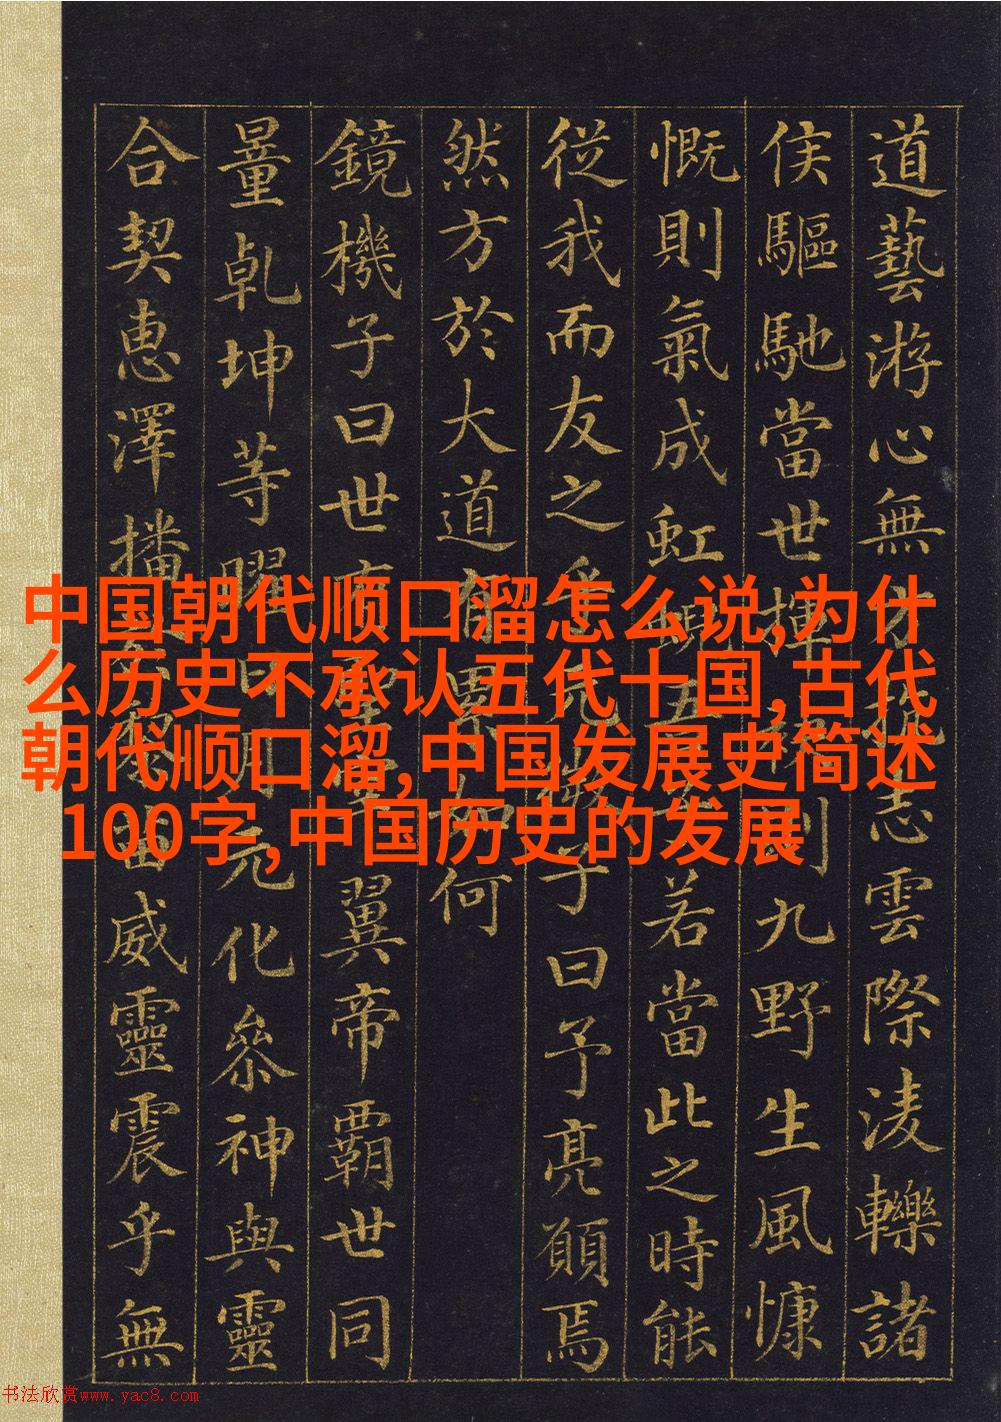 中国朝代顺口溜怎么说,为什
么历史不承认五代十国,古代
朝代顺口溜,中国发展史简述
100字,中国历史的发展
道藝游心無方志雲際淩轢諸
侯驅馳當世揮則九野生風慷
慨則氣成虹若當此之時能
從我而友之乎子曰予亮願焉
然方於大道有累如何
鏡機子曰世有翼帝霸世同
量乾坤等曜日月元化參神與靈
合契惠澤播威靈震乎無
书法欣赏www.yac8.com